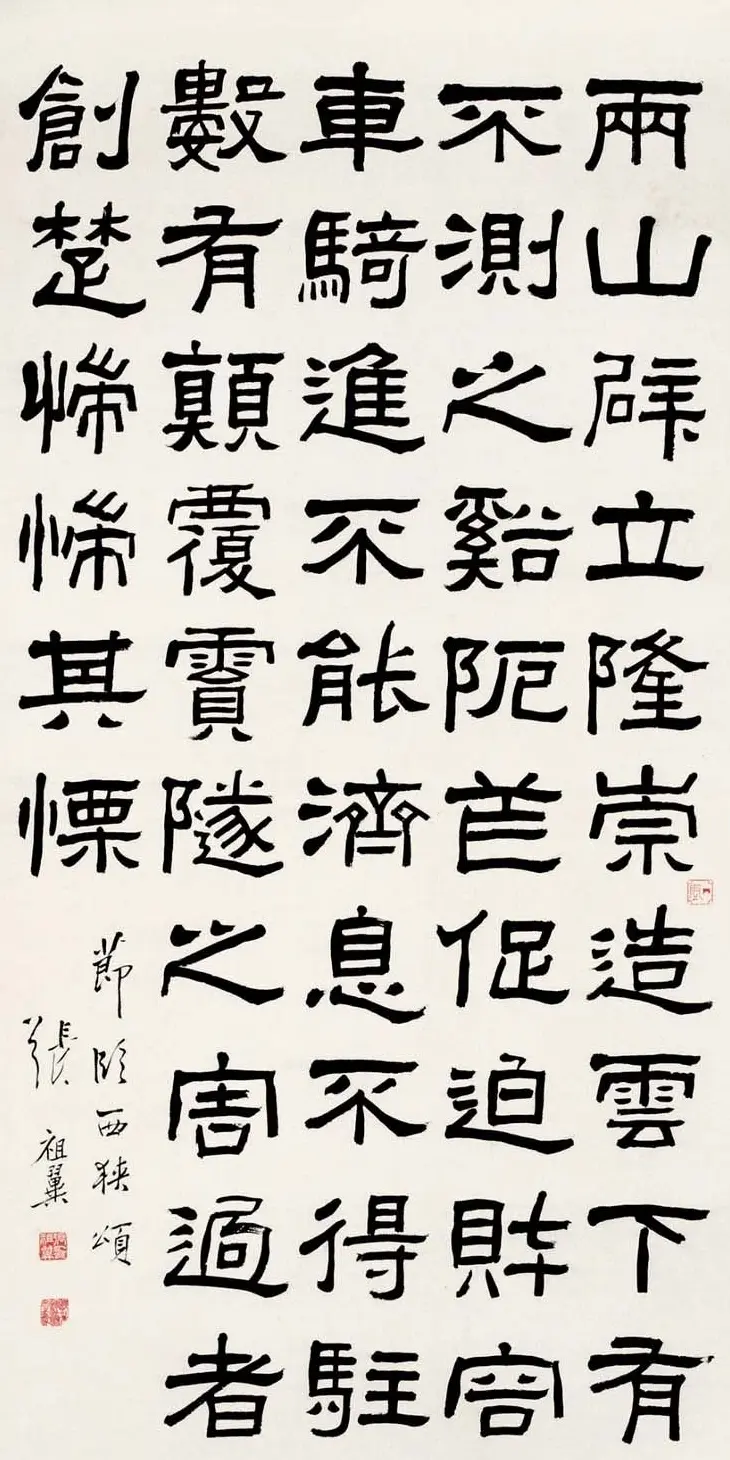 兩山辟立隆崇造雲下有
不測之谿阨芒促迫財容
車騎進不能濟息不得駐
數有顛覆霣隧之害過者
創楚惴惴其慄
節臨西狹頌
張祖翼